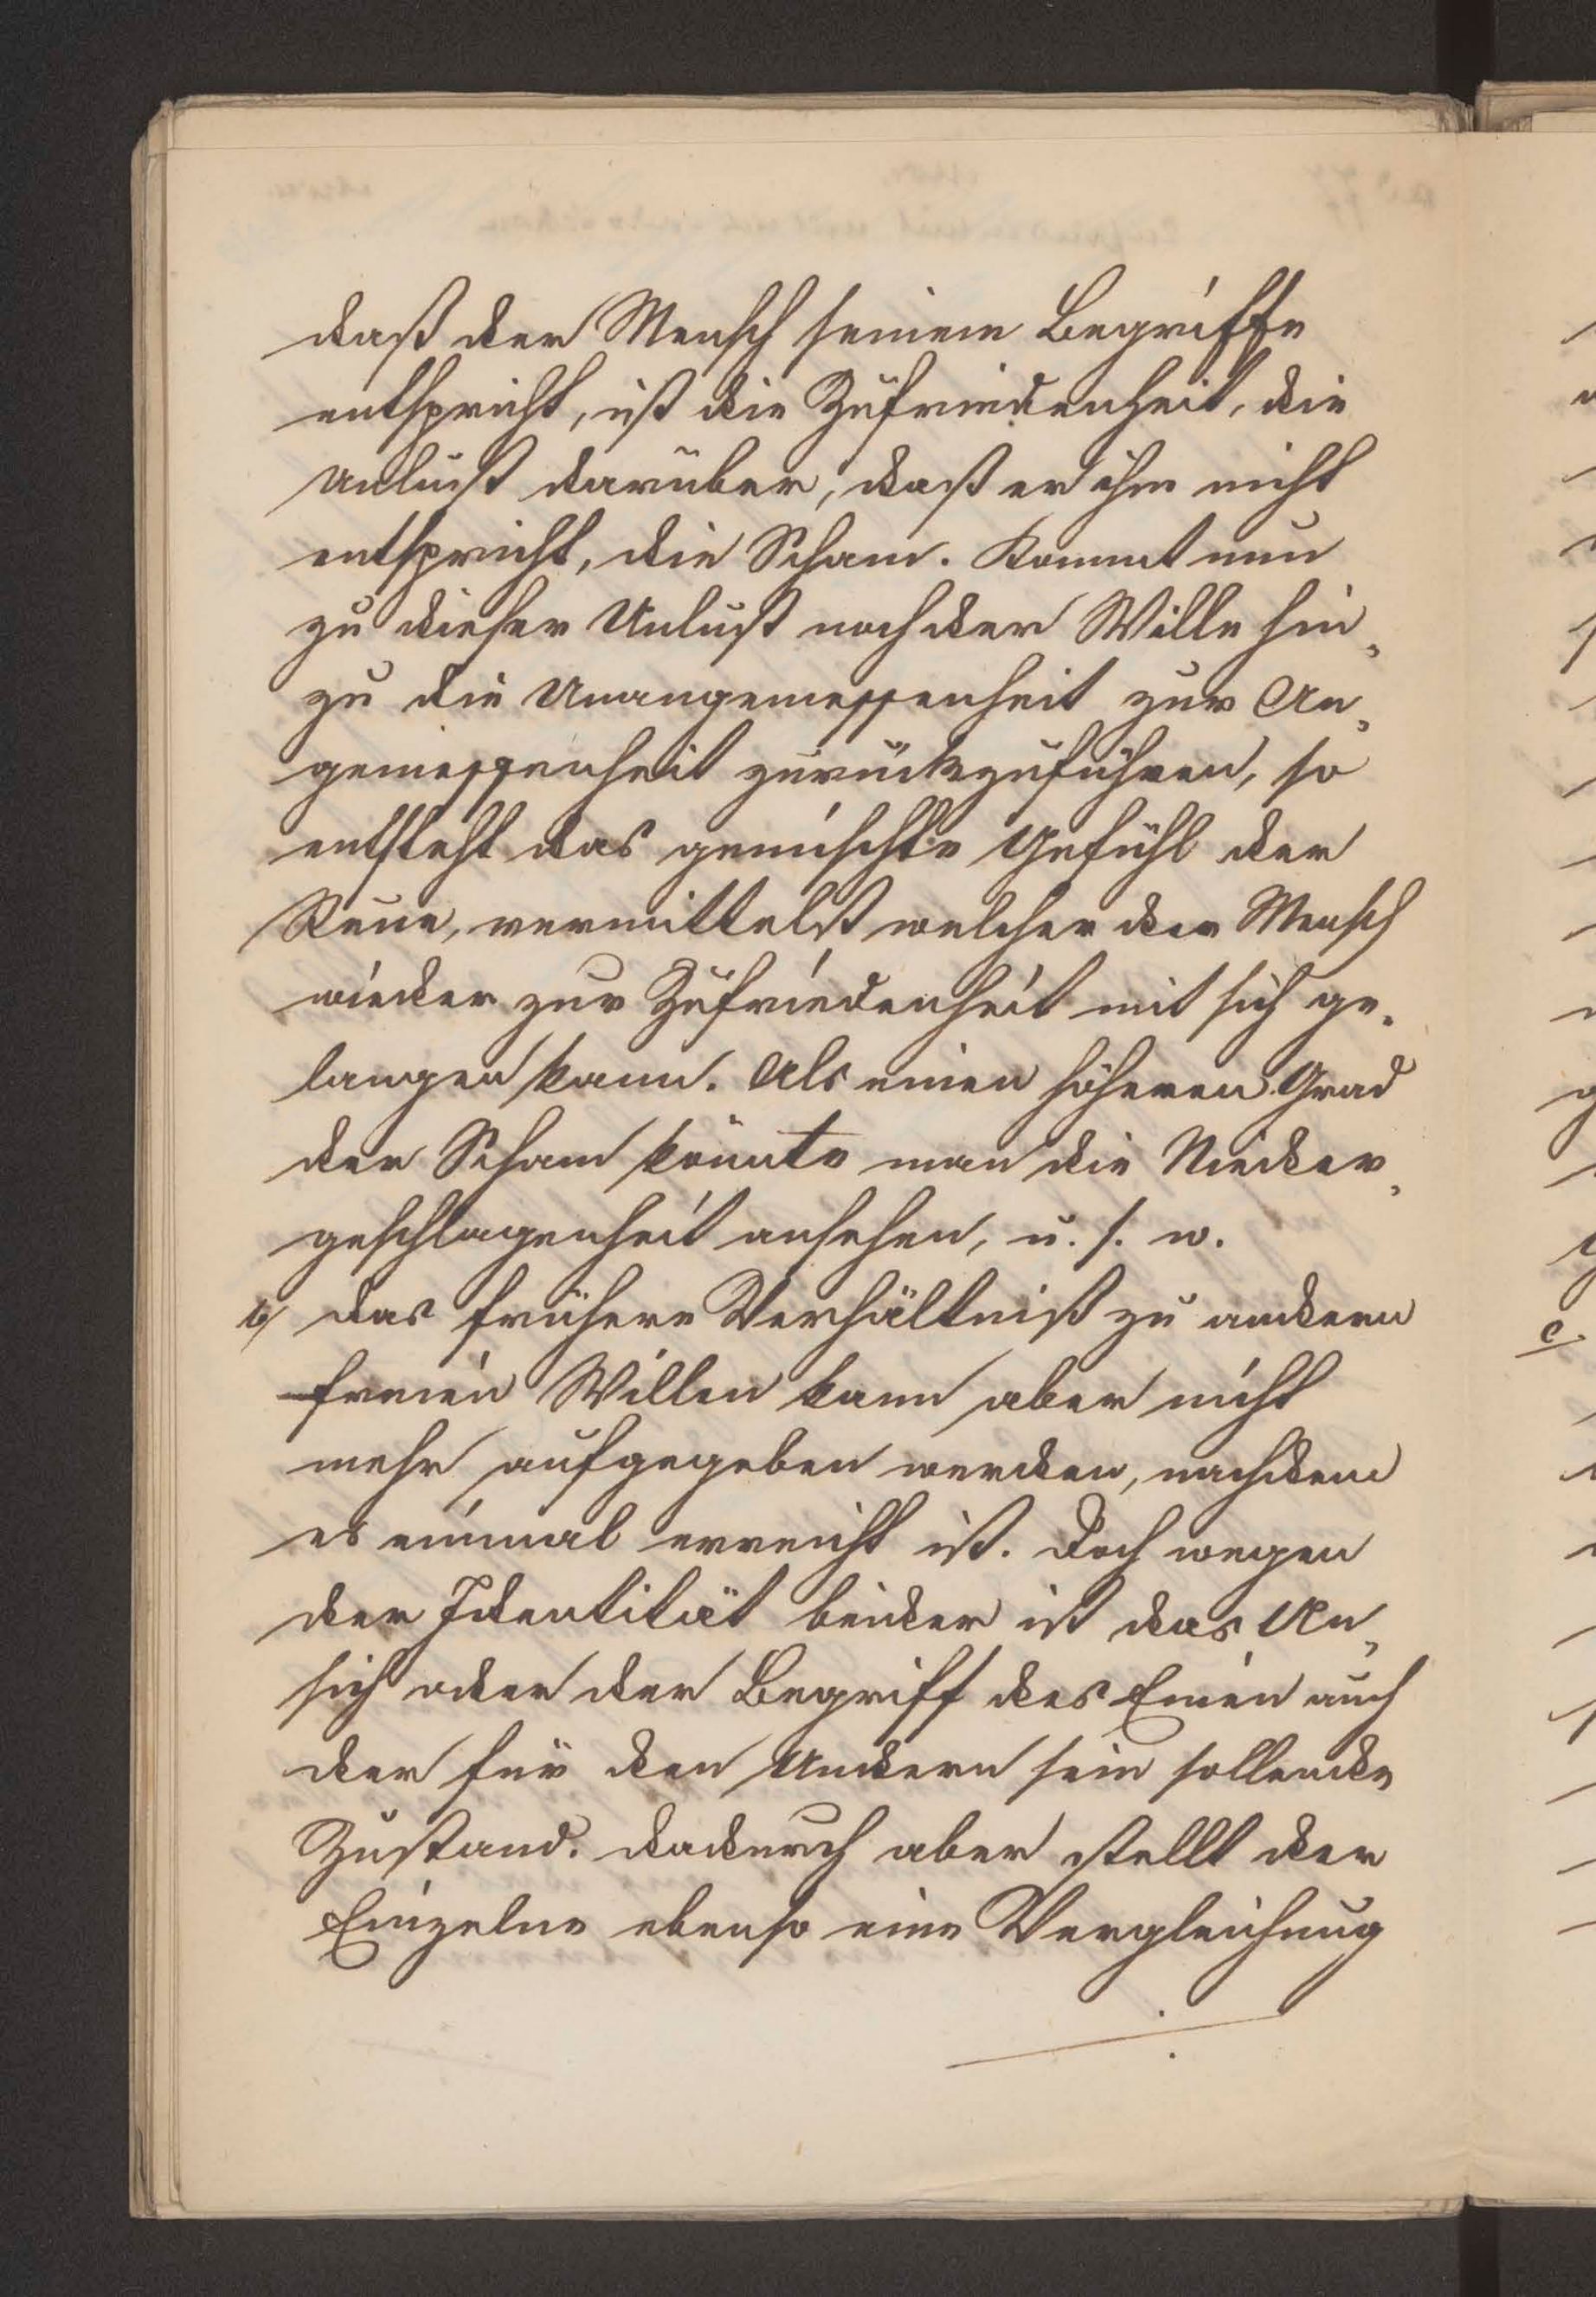 daß der Mensch seinem Begriffe
entspricht, ist die Zufriedenheit, die
Unlust darüber, daß er ihm nicht
entspricht, die Scham. Kommt nun
zu dieser Unlust noch der Wille hin„
zu die Unangemessenheit zur An„
gemessenheit zurückzuführen, so
entsteht das gemischte Gefühl der
Reue, vermittelst welcher der Mensch
wieder zur Zufriedenheit mit sich ge„
langen kann. Als einen höheren Grad
der Scham könnte man die Nieder„
geschlagenheit ansehen, u. s. w.
b/ Das frühere Verhältniß zu andern
freien Willen kann aber nicht
mehr aufgegeben werden, nachdem
es einmal erreicht ist. Doch wegen
der Identität beider ist das An„
sich oder der Begriff des Einen auch
der für den Andern sein sollende
Zustand. Dadurch aber stellt der
Einzelne ebenso eine Vergleichung
c